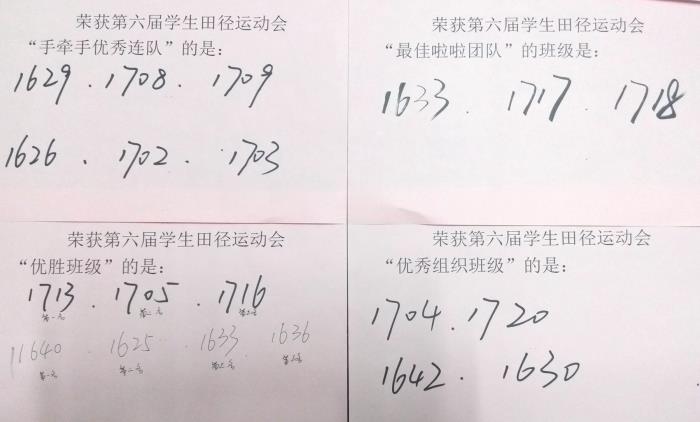 荣获第六届学生田径运动会
“手牵手优秀连队”的是：
1629 . 1708 . 1709
1626 . 1702 . 1703
荣获第六届学生田径运动会
“最佳啦啦团队”的班级是：
1633 . 1717 . 1718
荣获第六届学生田径运动会
“优胜班级”的是：
1713 . 1705 . 1716
第一名 第二名 第三名
11640 . 1625 . 1633 . 1636
第一名 第二名 第三名 第三名
荣获第六届学生田径运动会
“优秀组织班级”的是：
1704 . 1720
1642 . 1630